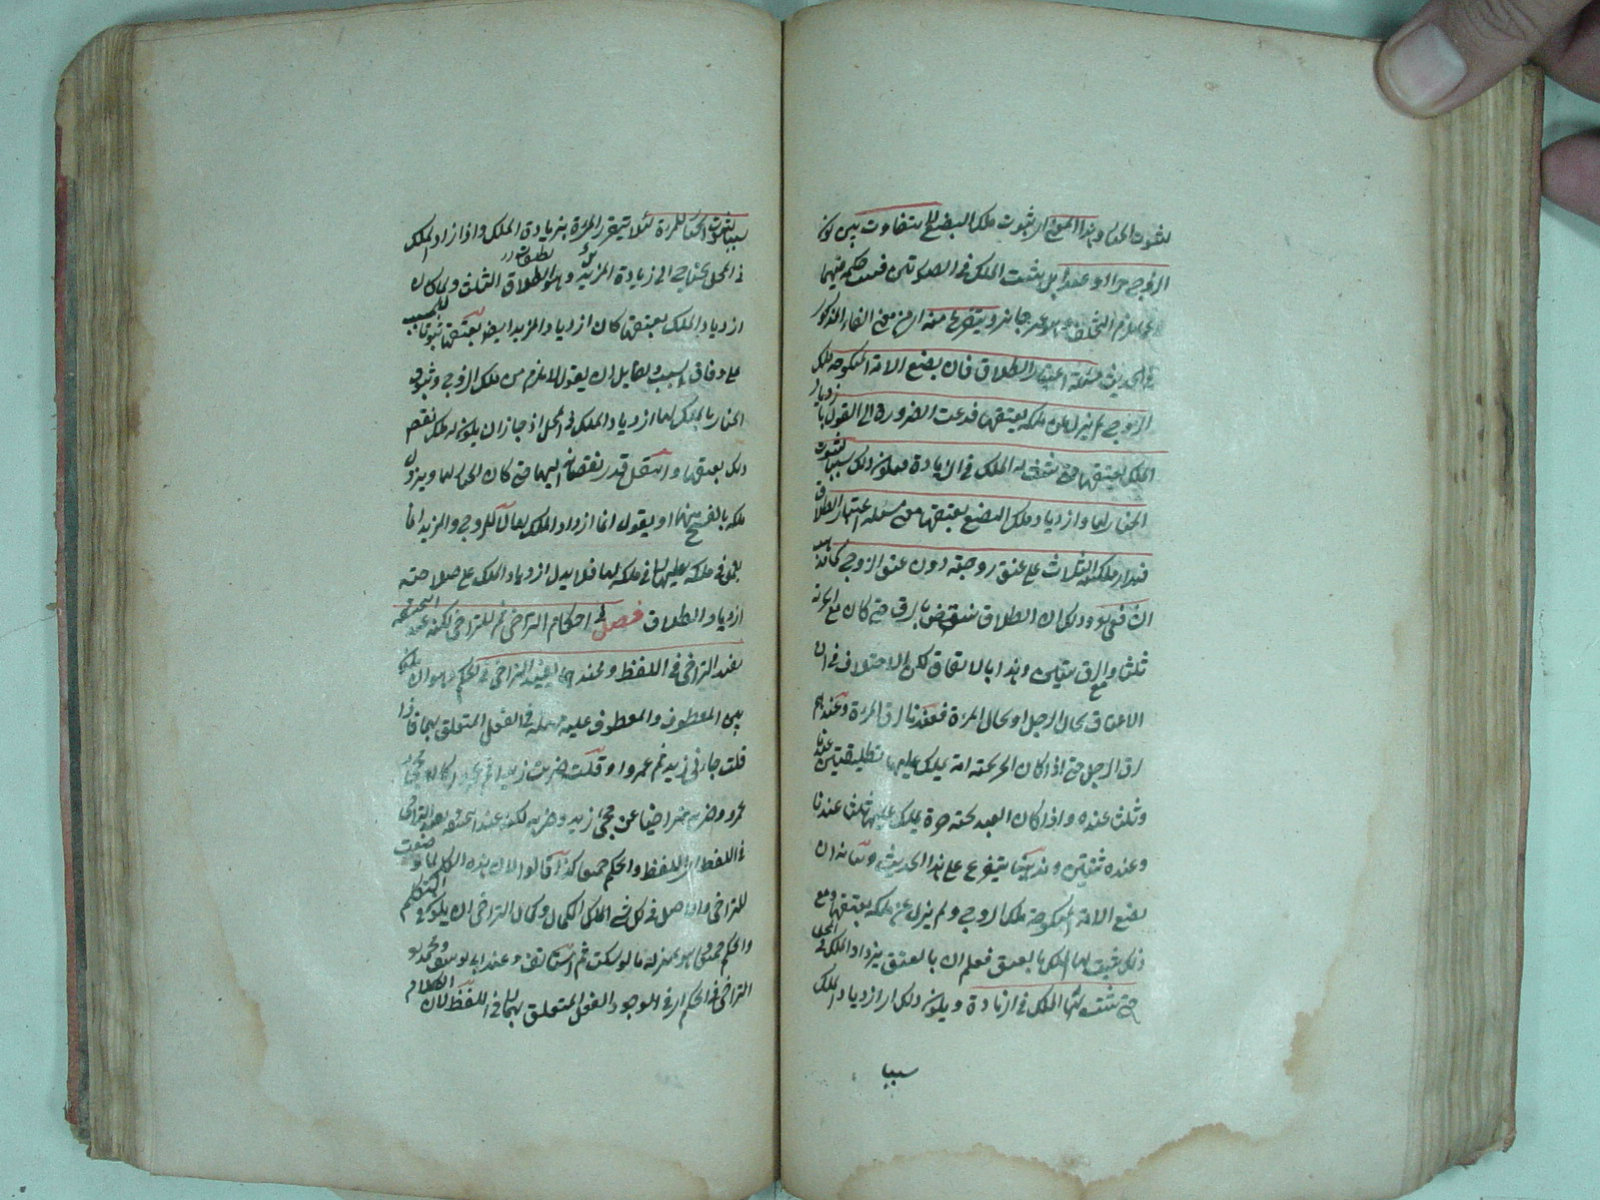 لثبوت الخيار وهذا المعنى ار ثبوت ملك البضع لها يتفاوت بين كون
الزوج حرا او عبدا بل يثبت الملك في الصورتين فيثبت حكمه فيهما
وهو غير جائز ويتفرع منه ار من معنى الفاء المذكور
في الحديث مسئلة اعتبار الطلاق فان بضع الامة المنكوحة ملك
الزوج لم يزل عن ملكه بعتقها فدعت الضرورة الى القول بازدياد
الملك بعتقها حتى يثبت له الملك في الزيادة فيكون ذلك سببا لثبوت
الخيار لها وازدياد ملك البضع بعتقها معنى مسئلة اعتبار الطلاق
فيدار ملكية الثلاث على عتق زوجته دون عتق الزوج كما ذهب
الشافعي وذلك ان الطلاق ينتقض بالرق حتى كان مع الحرية
ثلثا والرق ثنتين وهذا بالاتفاق لكن الاختلاف في ان
الاعتبار بحال الرجل او بحال المرءة فعندنا رق المرءة وعندهم
رق الرجل حتى اذا كان الحر تحته امة يملك عليها تطليقتين عندنا
وثلث عنده واذا كان العبد تحته حرة يملك عليها ثلثا عندنا
وعنده ثنتين ومذهبنا يتفرع على هذا الحديث وبيانه ان
بضع الامة المنكوحة ملك الزوج ولم يزل عن ملكه بعتقها ومع
ذلك يثبت لها الملك بالعتق فعلم ان بالعتق يزداد الملك في المحل
حتى يثبت لها الملك في الزيادة ويكون ذلك ار ازدياد الملك
سببا
سببا لثبوت الخيار للمرءة لئلا يتضرر المرءة بزيادة الملك واذا ازداد الملك
في المحل يحتاج الى زيادة المزيل وهو الطلاق الثلث ولما كان
ازدياد الملك بعتقها كان ازدياد المزيد ايضا بعتقها ثبوتا للسبب
على وفاق السبب ولقايل ان يقول لا يلزم من ملك الزوج وثبوت
الخيار بالملك لها ازدياد الملك في المحل اذ جاز ان يكون له ملك نقص
ذلك بعتقها وانتقل قدر نقصانه اليها حتى كان الخيار لها ويزول
ملكه بالفسخ منها او يقول انما ازداد الملك يقال للزوج والمزيد انما
يعمل في ملكه عليها لا في ملكه لها فلا يدل ازدياد الملك على صلاحته
ازدياد الطلاق فصل في احكام التراخي ثم للتراخي لكنه عند ابيحنيفة
يفيد التراخي في اللفظ والحكم وعندهما يفيد التراخي في الحكم وهو ان يكون
بين المعطوف والمعطوف عليه مهملة في الفعل المتعلق بهما فاذا
قلت جاءني زيد ثم عمرو او قلت ضربت زيدا ثم عمروا كان مجئ
عمرو وضربه متراخيا عن مجئ زيد وضربه لكنه عند ابيحنيفة بعد التراخي
في اللفظ ار اللفظ والحكم جميعا كذا قالوا لان هذه الكلمة لما وضعت
للتراخي والاصل في كل شئ الكمال وكمال التراخي ان يكون في التكلم
والحكم جميعا هو بمنزلة ما لو سكت ثم استانف وعند ابي يوسف ومحمد هو
التراخي في الحكم ار في الوجود الفعل المتعلق بهما لا في اللفظ لان الكلام